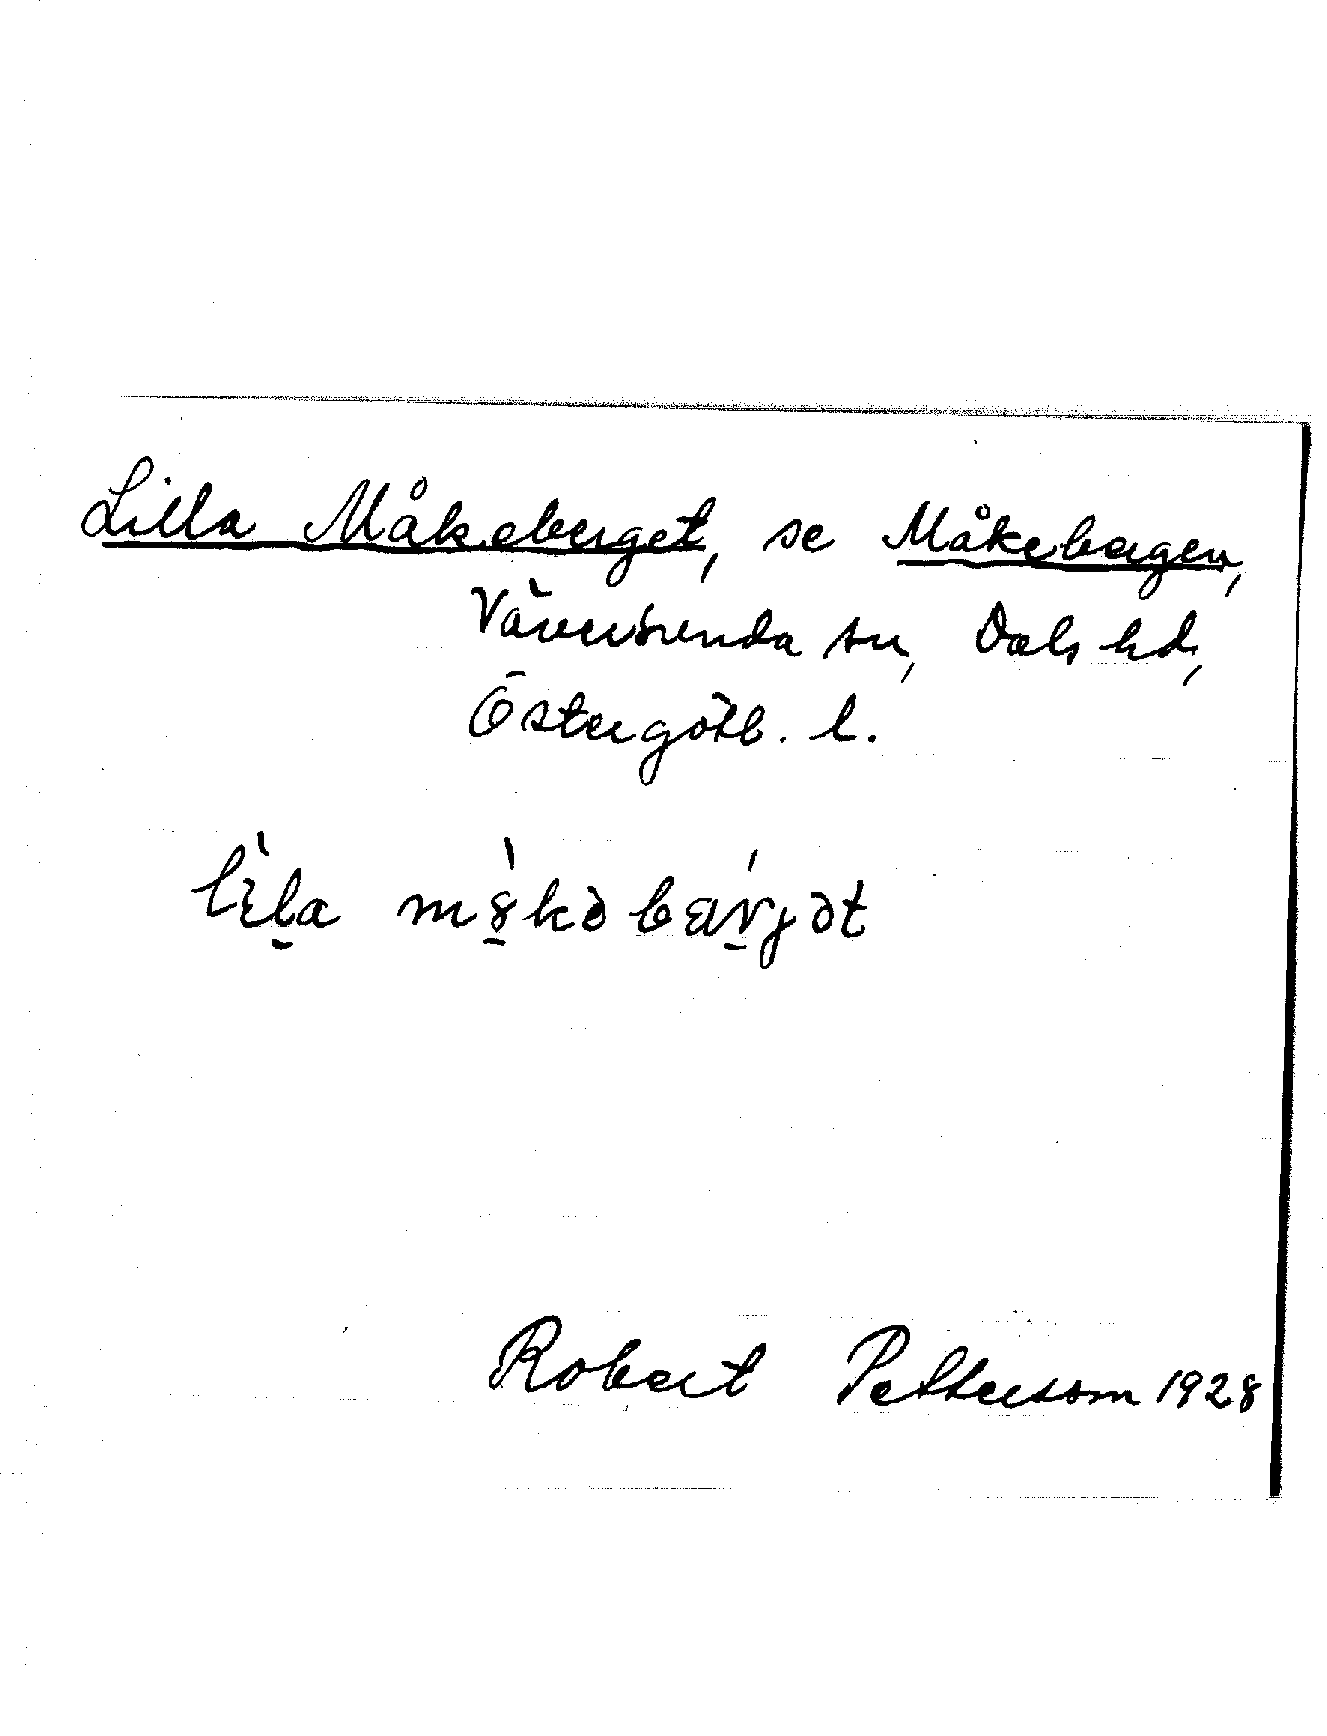 Lilla Måkeberget, se Måkebergen,
Väversunda sn, Dals hd,
Östergötl. l.
lìla mə̀kəbærjət
Robert Pettersson 1928